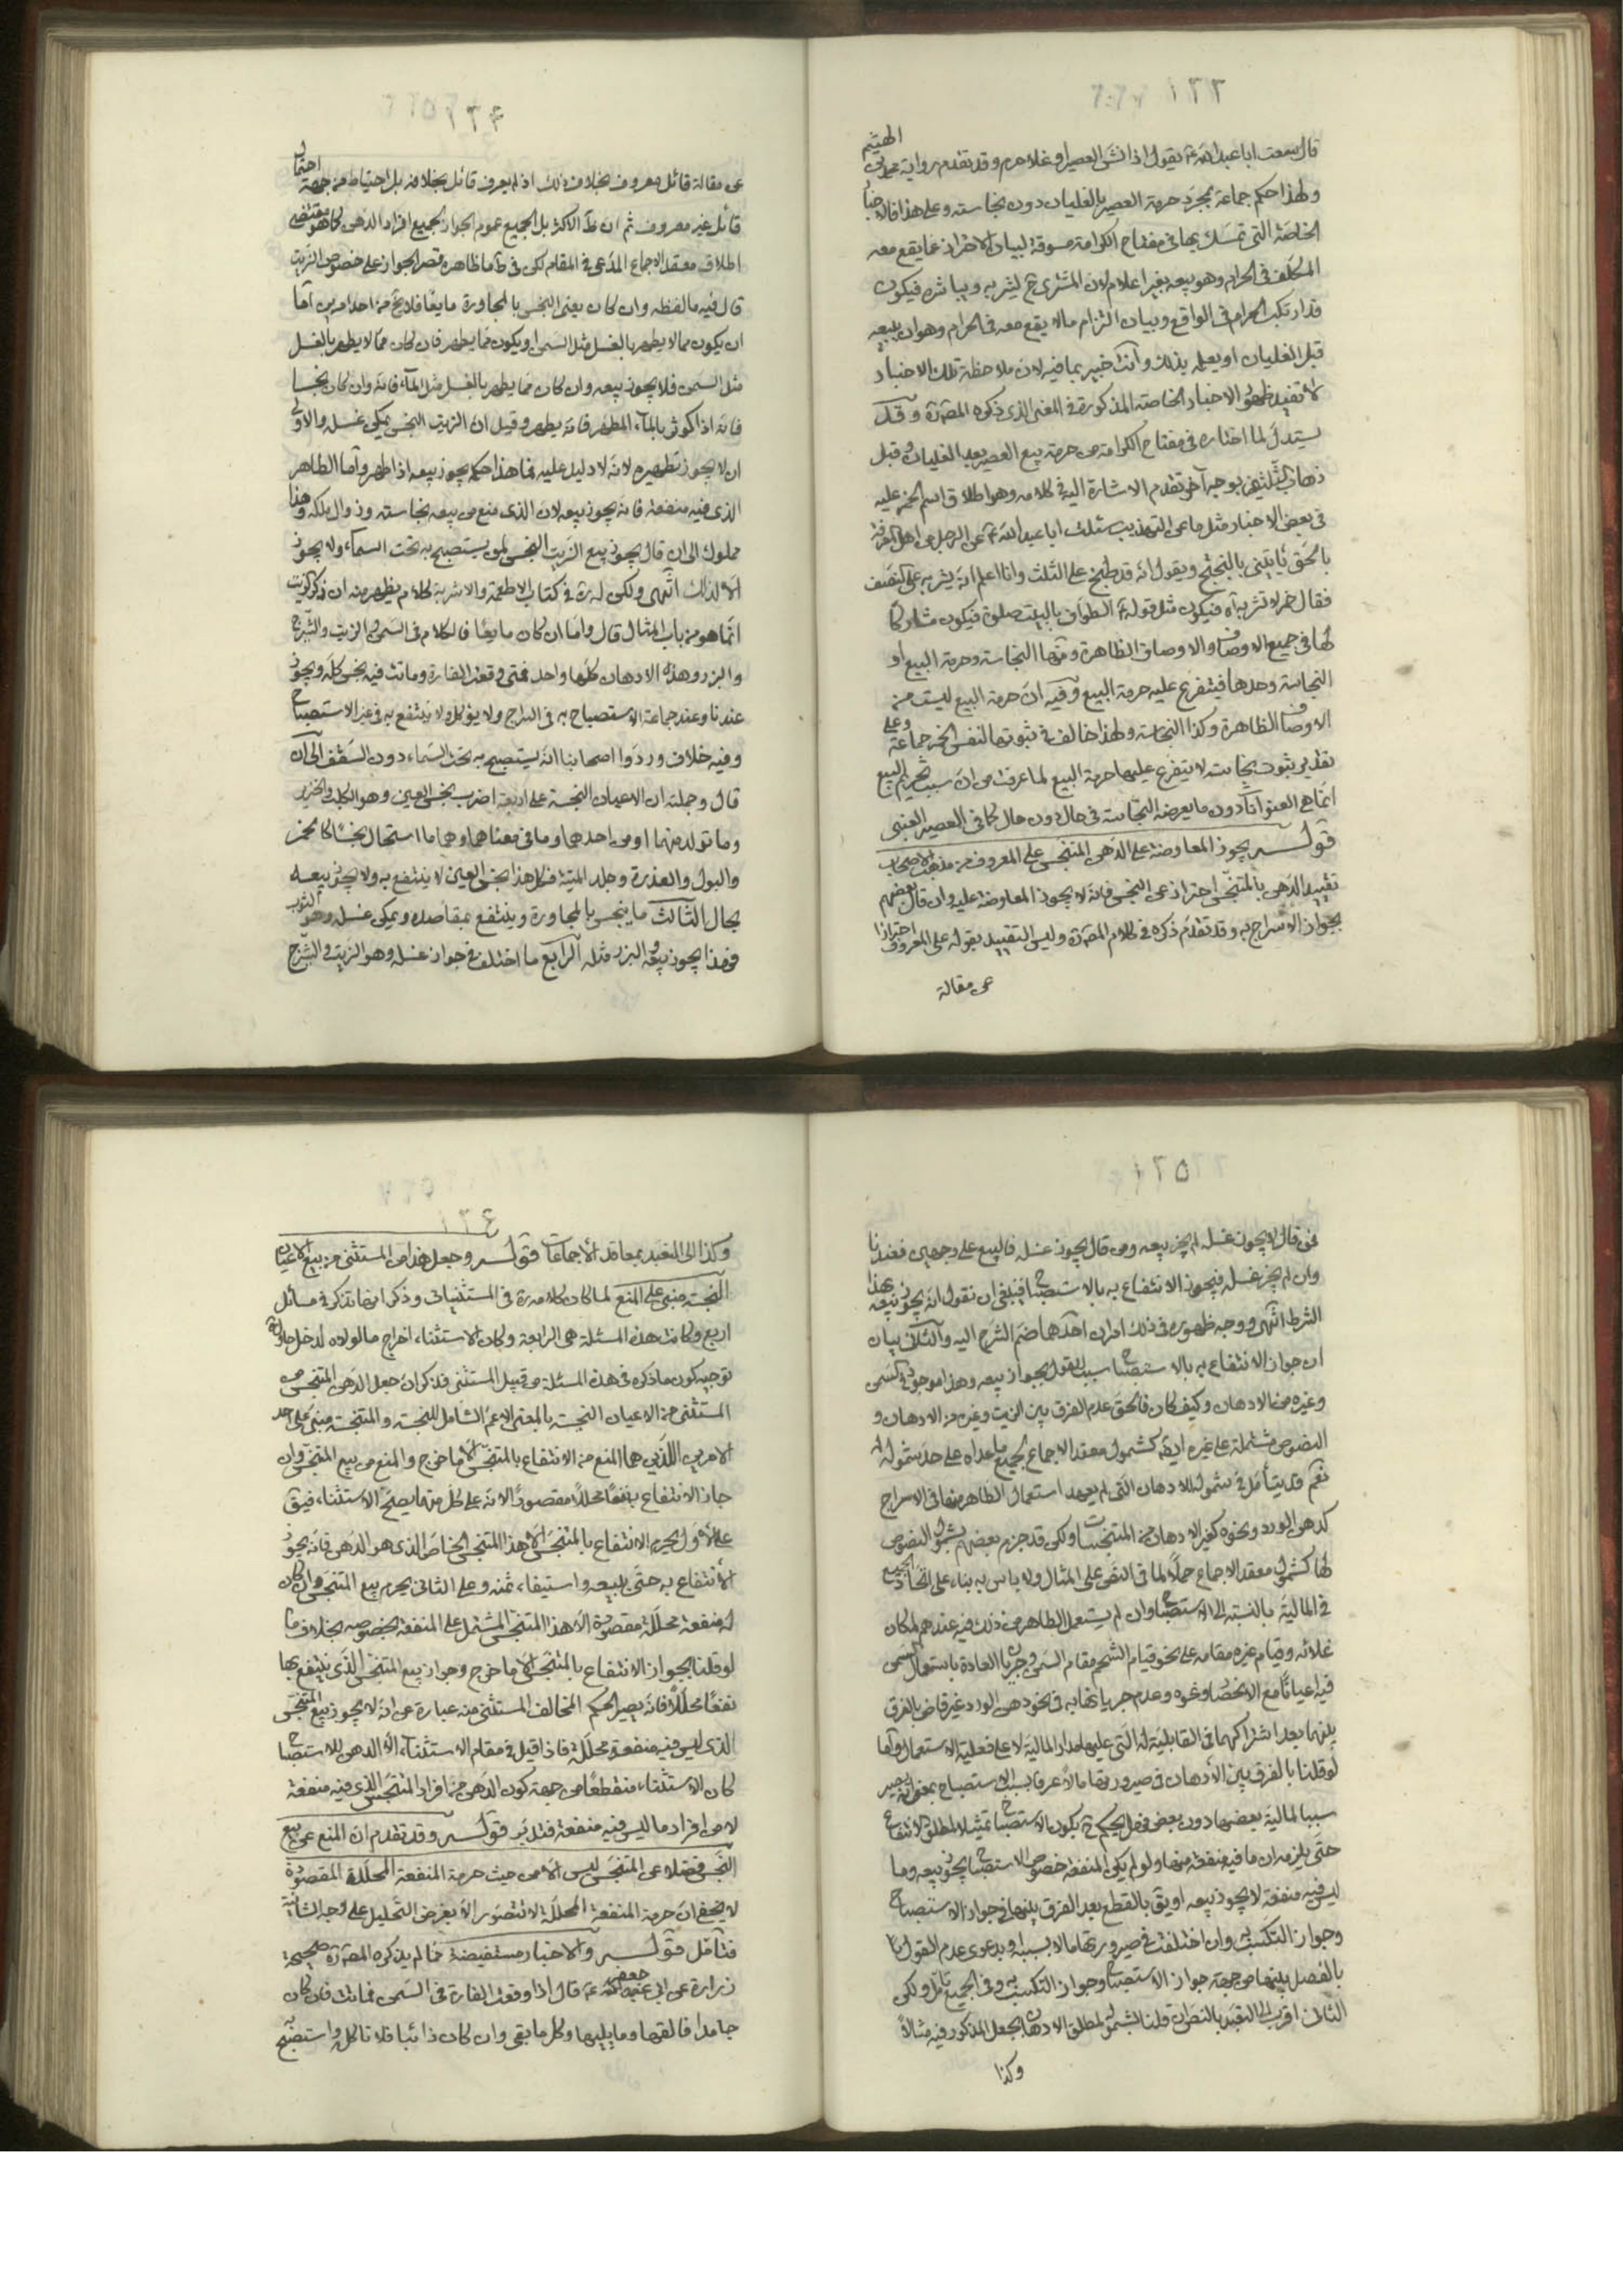 ١٢٣
قال سمعت ابا عبد الله ع يقول اذا نشّ العصير او غلا حرم وقد تقدم رواية محمد بن الهيثم
ولهذا حكم جماعة بمجرد حرمة العصير بالغليان دون نجاسته وعلى هذا فالاخبار
الخاصّة التى تمسّك بها فى مفتاح الكرامة مسوقة لبيان الاحتراز عما يقع معه
المكلف فى الحرام وهو بيعه بغير اعلام لان المشترى ح ليشربه ويباشره فيكون
قد ارتكب الحرام فى الواقع وبيان التزام ما لا يقع معه فى الحرام وهو ان يبيعه
قبل الغليان او يعلمه بذلك وانت خبير بما فيه لان ملاحظة تلك الاخبار
لا تفيد ظهور الاخبار الخاصة المذكورة فى المعنى الذى ذكره المص ره وقد
يستدل لما اختاره فى مفتاح الكرامة من حرمة بيع العصير بعد الغليان وقبل
ذهاب الثلثين بوجه آخر تقدم الاشارة اليه فى كلامه وهو اطلاق اسم الخمر عليه
فى بعض الاخبار مثل ما عن التهذيب سئلت ابا عبد الله ع عن الرجل من اهل المعرفة
بالحق يأتينى بالبختج ويقول انه قد طبخ على الثلث وانا اعلم انه يشربه على النصف
فقال خمر لا تشربه اه فيكون مثل قوله ع الطواف بالبيت صلوة فيكون مشاركا
لها فى جميع الاوصاف والاوصاف الظاهرة ومنها النجاسة وحرمة البيع او
النجاسة وحدها فيتفرع عليه حرمة البيع وفيه ان حرمة البيع ليست من
الاوصاف الظاهرة وكذا النجاسة ولهذا خالف فى ثبوتها لنفس الخمر جماعة وعلى
تقدير ثبوت نجاسته لا يتفرع عليها حرمة البيع لما عرفت من ان سبب تحريم البيع
انما هى العنوانات دون ما يعرضه النجاسة فى حال دون حال كما فى العصير العنبى
قولــه يجوز المعاوضة على الدهن المتنجس على المعروف من مذهب الاصحاب
تقييد الدهن بالمتنجس احتراز عن النجس فانه لا يجوز المعاوضة عليه وان قال بعضهم
بجواز الاسراج به وقد تقدم ذكره فى كلام المص ره وليس التقييد بقوله على المعروف احترازا
عن مقالة
١٢٤
عن مقالة قائل معروف بخلاف ذلك اذ لم يعرف قائل بخلافه بل احتياط من جهة احتمال
قائل غير معروف ثم ان ظ الاكثر بل الجميع عموم الجواز لجميع افراد الدهن كما هو مقتضى
اطلاق معقد الاجماع المدعى فى المقام لكن فى ط ما ظاهره قصر الجواز على خصوص الزيت
قال فيه ما لفظه وان كان يعنى النجس بالمجاورة مايعًا فلا يخ من احد امرين اما
ان يكون مما لا يطهر بالغسل مثل السمن او يكون مما يطهر فان كان مما لا يطهر بالغسل
مثل السمن فلا يجوز بيعه وان كان مما يطهر بالغسل مثل الماء فانه وان كان نجسا
فانه اذا كوثر بالماء المطهر فانه يطهر وقيل ان الزيت النجس يمكن غسله والاولى
ان لا يجوز تطهيره لانه لا دليل عليه فما هذا حكمه يجوز بيعه اذا طهر واما الطاهر
الذى فيه منفعة فانه يجوز بيعه لان الذى منع من بيعه نجاسته وزوال ملكه وهذا
مملوك الى ان قال يجوز بيع الزيت النجس لمن يستصبح به تحت السماء ولا يجوز
الا لذلك انتهى ولكن له ره فى كتاب الاطعمة والاشربة كلام يظهر منه ان ذكر الزيت
انما هو من باب المثال قال واما ان كان مايعًا فالكلام فى السمن والزيت والشيرج
والبزر وهذه الادهان كلها واحد فمتى وقعت الفارة وماتت فيه نجس كله ويجوز
عندنا وعند جماعة الاستصباح به فى السراج ولا يؤكل ولا ينتفع به فى غير الاستصباح
وفيه خلاف وردوا اصحابنا انه يستصبح به تحت السماء دون السقف الى ان
قال وجملته ان الاعيان النجسة على اربعة اضرب نجس العين وهو الكلب والخنزير
وما تولد منهما او من احدهما وما فى معناهما وهما ما استحال نجسًا كالخمر
والبول والعذرة وجلد الميتة فكل هذا نجس العين لا ينتفع به ولا يجوز بيعه
بحال الثالث ما ينجس بالمجاورة وينتفع بمقاصده ويمكن غسله وهو الثوب
فهذا يجوز بيعه والبزر مثله الرابع ما اختلف فى جواز غسله وهو الزيت والشيرج
١٢٥
فمن قال لا يجوز غسله لم يجز بيعه ومن قال يجوز غسله فالبيع على وجهين فعندنا
وان لم يجز غسله فيجوز الانتفاع به بالاستصباح فينبغى ان نقول انه يجوز بيعه بهذا
الشرط انتهى ووجه ظهوره فى ذلك امران احدهما ضم الشيرج اليه والثانى بيان
ان جواز الانتفاع به بالاستصباح سبب للقول بجواز بيعه وهذا موجود فى السمن
وغيره من الادهان وكيف كان فالحق عدم الفرق بين الزيت وغيره من الادهان و
النصوص مشتملة على غيره ايضًا كشمول معقد الاجماع لجميع ما عداه على حد شموله له
نعم قد يتأمل فى شموله للادهان التى لم يعهد استعمال الطاهر منها فى الاسراج
كدهن الورد ونحوه كغير الادهان من المتنجسات ولكن قد جزم بعضهم بشمول النصوص
لها كشمول معقد الاجماع حملًا لما فى النص على المثال ولا باس به بناء على اتحاد الجميع
فى المالية بالنسبة الى الاستصباح وان لم يستعمل الطاهر من ذلك فيه عندهم لمكان
غلائه وقيام غيره مقامه على نحو قيام الشحم مقام السمن وجريان العادة باستعمال السمن
فيه احيانًا مع الانحصار ونحوه وعدم جريانها به فى نحو دهن الورد غير قاض بالفرق
بينهما بعد اشتراكهما فى القابلية له التى عليها مدار المالية لا على فعلية الاستعمال واما
لو قلنا بالفرق بين الادهان فى صيرورتها مالا عرفا بسبب الاستصباح بمعنى انه يصير
سببا لمالية بعضها دون بعض فهل يحكم ح بكون الاستصباح تمثيلا لمطلق الانتفاع
حتى يلزمه ان ما فيه منفعة منها ولو لم يكن المنفعة خصوص الاستصباح يجوز بيعه وما
ليس فيه منفعة لا يجوز بيعه او يق بالقطع بعد الفرق بينها فى جواز الاستصباح
وجواز التكسب به وان اختلفت فى صيرورتها مالا بسببه او بدعوى عدم القول
بالفصل بينها من جهة جواز الاستصباح وجواز التكسب به وفى الجميع تأمل ولكن
الثانى اقرب الى التقيد بالنص ان قلنا بشمول لمطلق الادهان بجعل المذكور فيه مثالًا
وكذا
١٢٦
وكذا الى التقيد بمعاقد الاجماعات قولــه وجعل هذا من المستثنى من بيع الاعيان
النجسة مبنى على المنع لما كان كلامه ره فى المستثنيات وذكر انها تذكر فى مسائل
اربع وكانت هذه المسئلة هى الرابعة وكان الاستثناء اخراج ما لولاه لدخل حاول
توجيه كون ما ذكره فى هذه المسئلة من قبيل المستثنى فذكر ان جعل الدهن المتنجس من
المستثنى من الاعيان النجسة بالمعنى الاعم الشامل للنجسة والمتنجسة مبنى على احد
الامرين اللذين هما المنع من الانتفاع بالمتنجس الا ما خرج والمنع من بيع المتنجس وان
جاز الانتفاع به نفعًا محللًا مقصودًا لانه على كل منهما يصح الاستثناء فيق
على الاول يحرم الانتفاع بالمتنجس الا هذا المتنجس الخاص الذى هو الدهن فانه يجوز
الانتفاع به حتى ببيعه واستيفاء ثمنه وعلى الثانى يحرم بيع المتنجس وان كان
له منفعة محللة مقصودة الا هذا المتنجس المشتمل على المنفعة بخصوصه بخلاف ما
لو قلنا بجواز الانتفاع بالمتنجس الا ما خرج وجواز بيع المتنجس الذى ينتفع بها
نفعًا محللًا فانه يصير الحكم المخالف المستثنى منه عبارة عن انه لا يجوز بيع المتنجس
الذى ليس فيه منفعة محللة فاذا قيل فى مقام الاستثناء الا الدهن للاستصباح
كان الاستثناء منقطعًا من جهة كون الدهن من افراد المتنجس الذى فيه منفعة
لا من افراد ما ليس فيه منفعة فتدبر قولــه وقد تقدم ان المنع عن بيع
النجس فضلا عن المتنجس ليس الا من حيث حرمة المنفعة المحللة المقصودة
لا يخفى ان حرمة المنفعة المحللة لا تتصور الا بفرض التحليل على وجه الشانية
فتأمل قولــه والاخبار مستفيضة مما لم يذكره المص ره صحيحة
زرارة عن ابى جعفر ع قال اذا وقعت الفارة فى السمن فماتت فان كان
جامدا فالقها وما يليها وكل ما بقى وان كان ذائبا فلا تاكله واستصبح